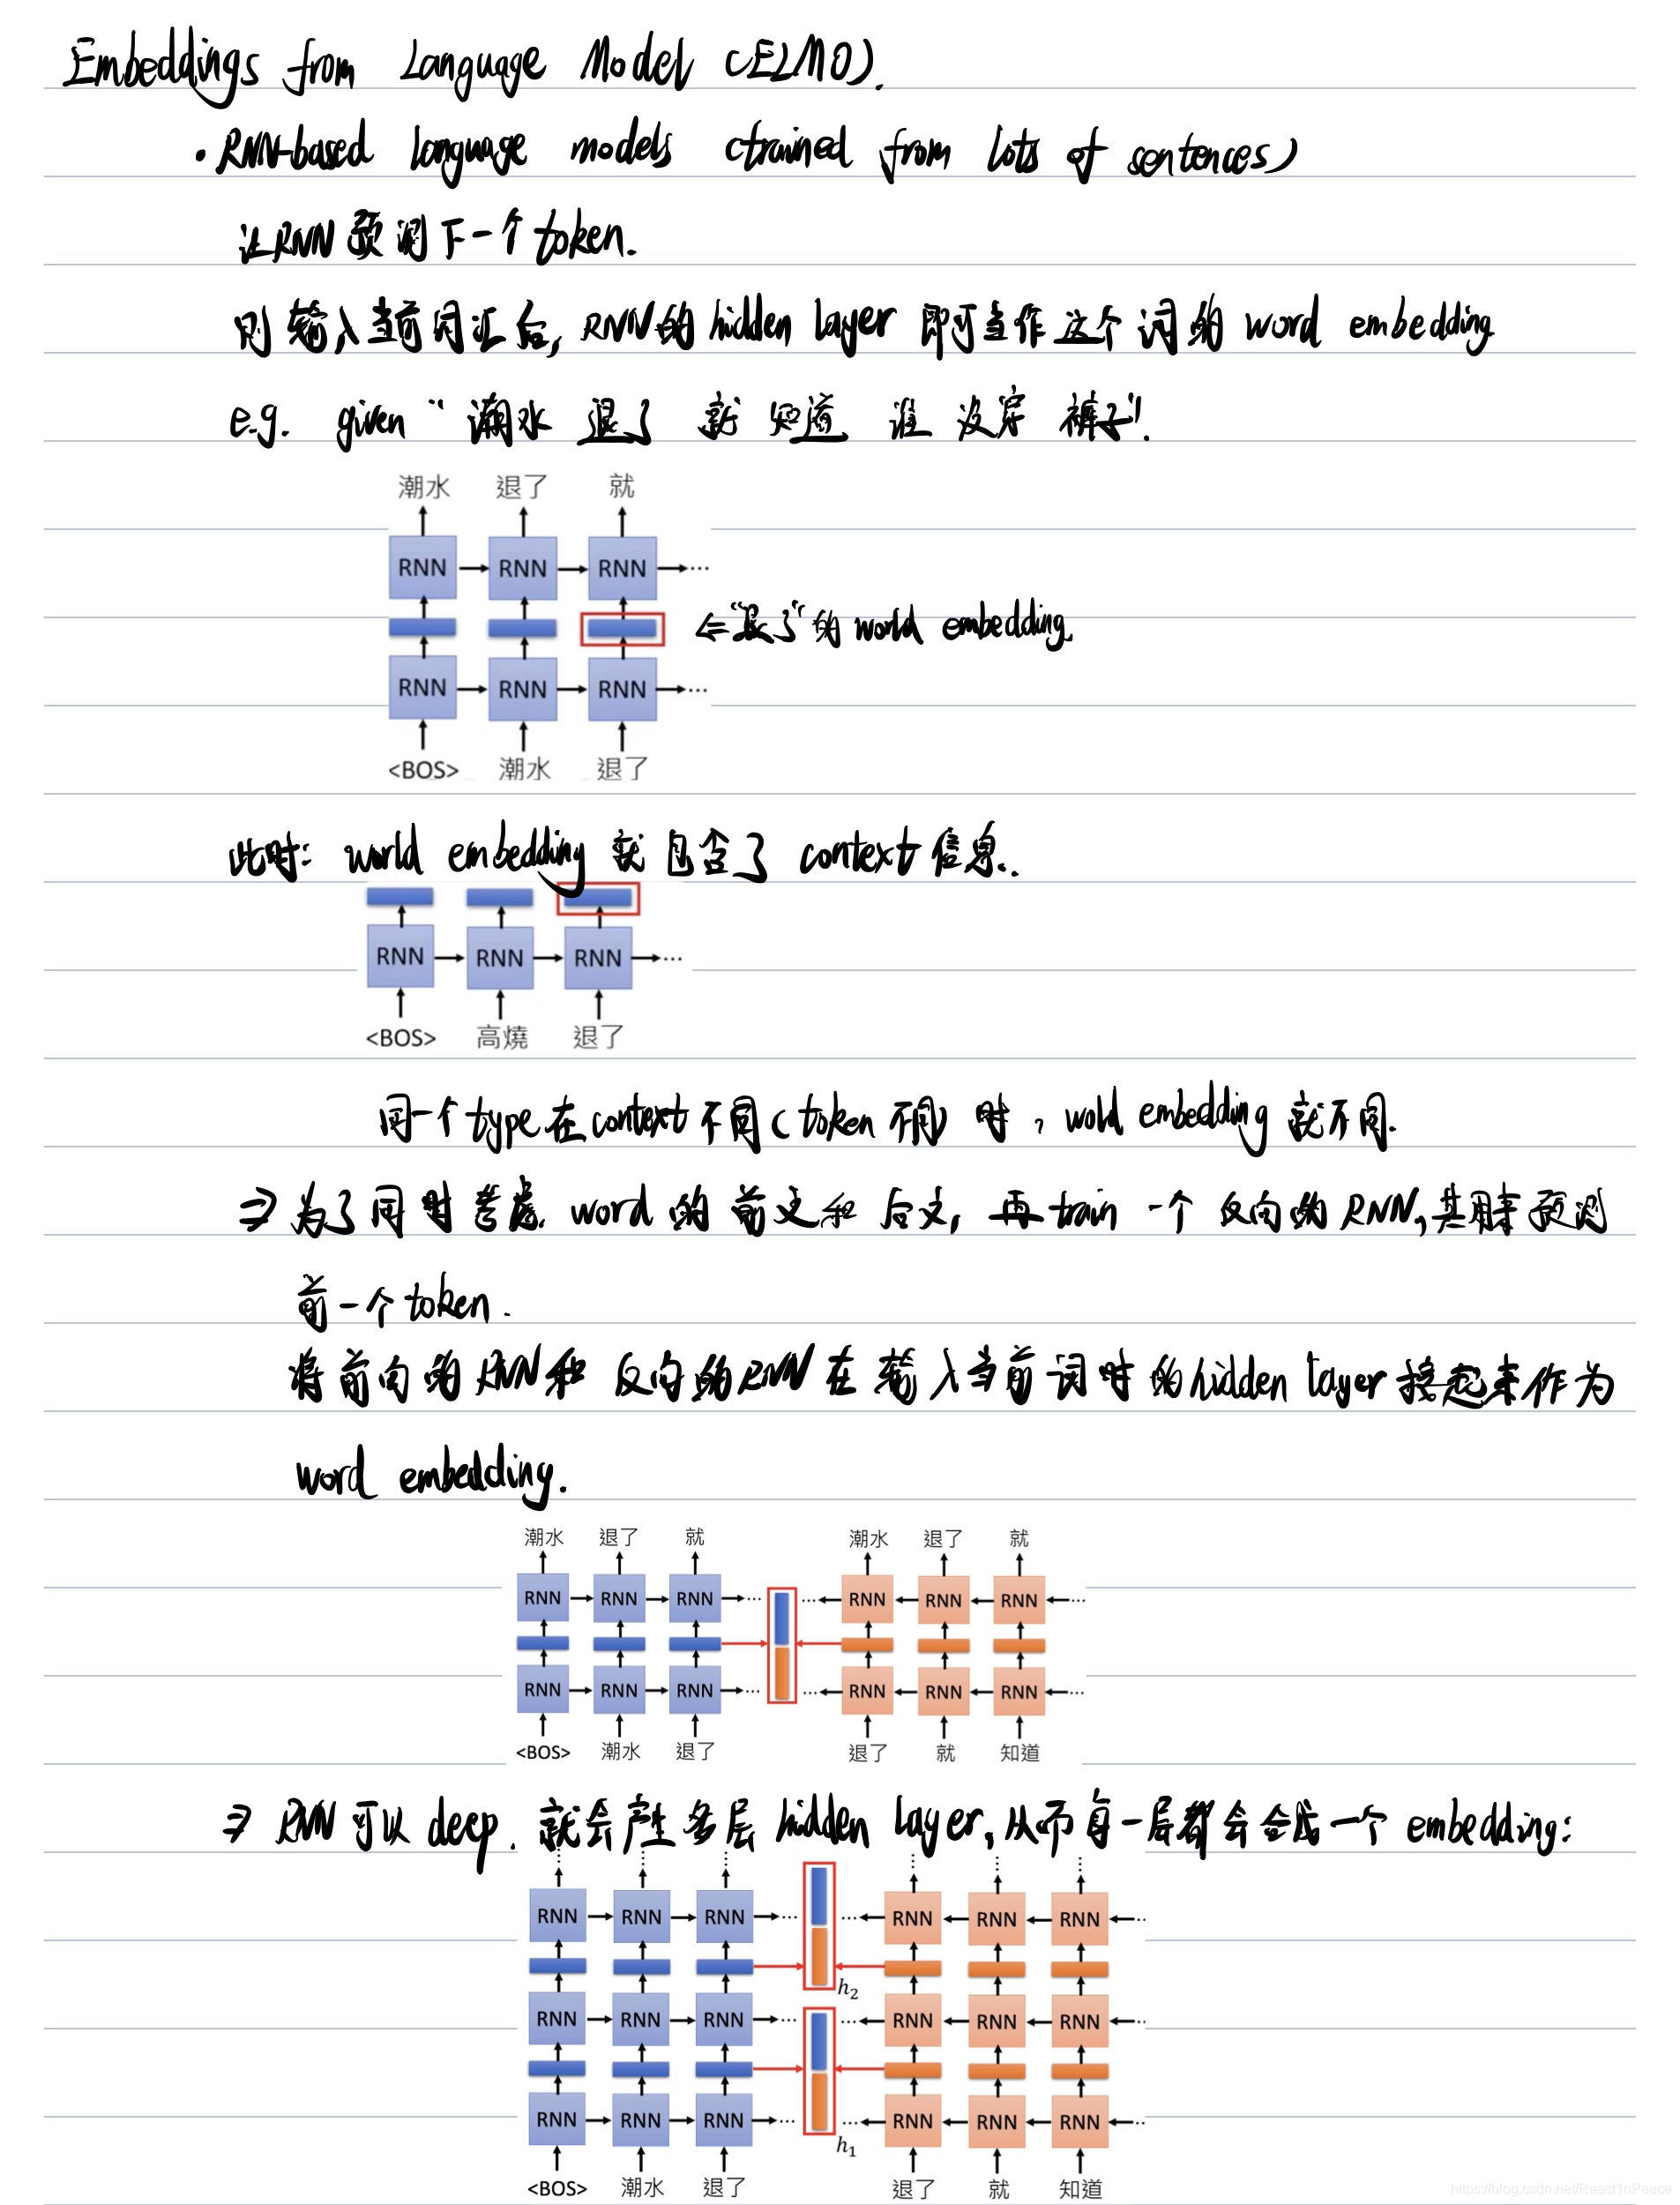 Embeddings from Language Model (ELMO).
• RNN-based language models (trained from lots of sentences)
让RNN预测下一个token.
则输入当前词汇后, RNN的hidden layer即可当作这个词的word embedding
e.g. given "潮水 退了 就 知道 谁 没穿 裤子".
潮水 退了 就
RNN RNN RNN ...
⇐"退了"的world embedding.
RNN RNN RNN ...
<BOS> 潮水 退了
此时: world embedding就包含了context信息.
RNN RNN RNN ...
<BOS> 高燒 退了
同一个type在context不同(token不同)时, world embedding就不同.
⇒ 为了同时考虑word的前文和后文, 再train一个反向的RNN,其用来预测
前一个token.
将前向的RNN和反向的RNN在输入当前词时的hidden layer接起来作为
word embedding.
潮水 退了 就 潮水 退了 就
RNN RNN RNN ... ... RNN RNN RNN ...
RNN RNN RNN ... ... RNN RNN RNN ...
<BOS> 潮水 退了 退了 就 知道
⇒ RNN可以deep. 就会产生多层hidden layer,从而每一层都会合成一个embedding:
RNN RNN RNN ... ... RNN RNN RNN ...
h₂
RNN RNN RNN ... ... RNN RNN RNN ...
RNN RNN RNN ... ... RNN RNN RNN ...
h₁
<BOS> 潮水 退了 退了 就 知道
https://blog.csdn.net/Reast1nPeace